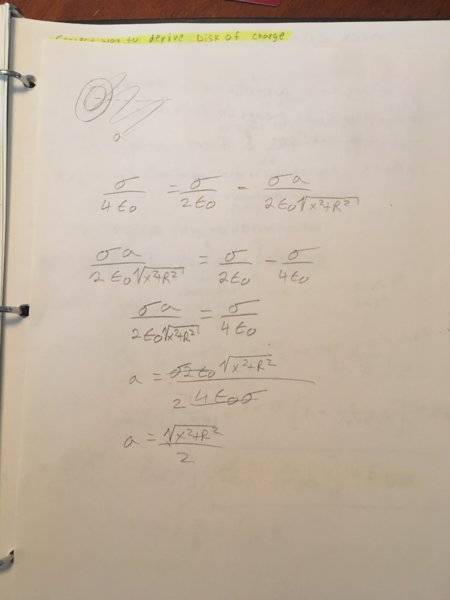 way to derive Disk of charge
a
σ/4ε₀ = σ/2ε₀ - σa/2ε₀√x²+R²
σa/2ε₀√x²+R² = σ/2ε₀ - σ/4ε₀
σa/2ε₀√x²+R² = σ/4ε₀
a = σ2ε₀√x²+R²/2 4ε₀σ
a = √x²+R²/2